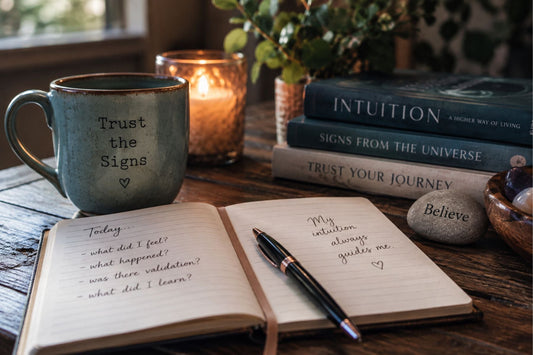 Trust
the
Signs
♡
INTUITION - A HIGHER WAY OF LIVING
SIGNS FROM THE UNIVERSE
TRUST YOUR JOURNEY
Believe
Today...
- what did I feel?
- what happened?
- was there validation?
- what did I learn?
My
intuition
always
guides me.
♡